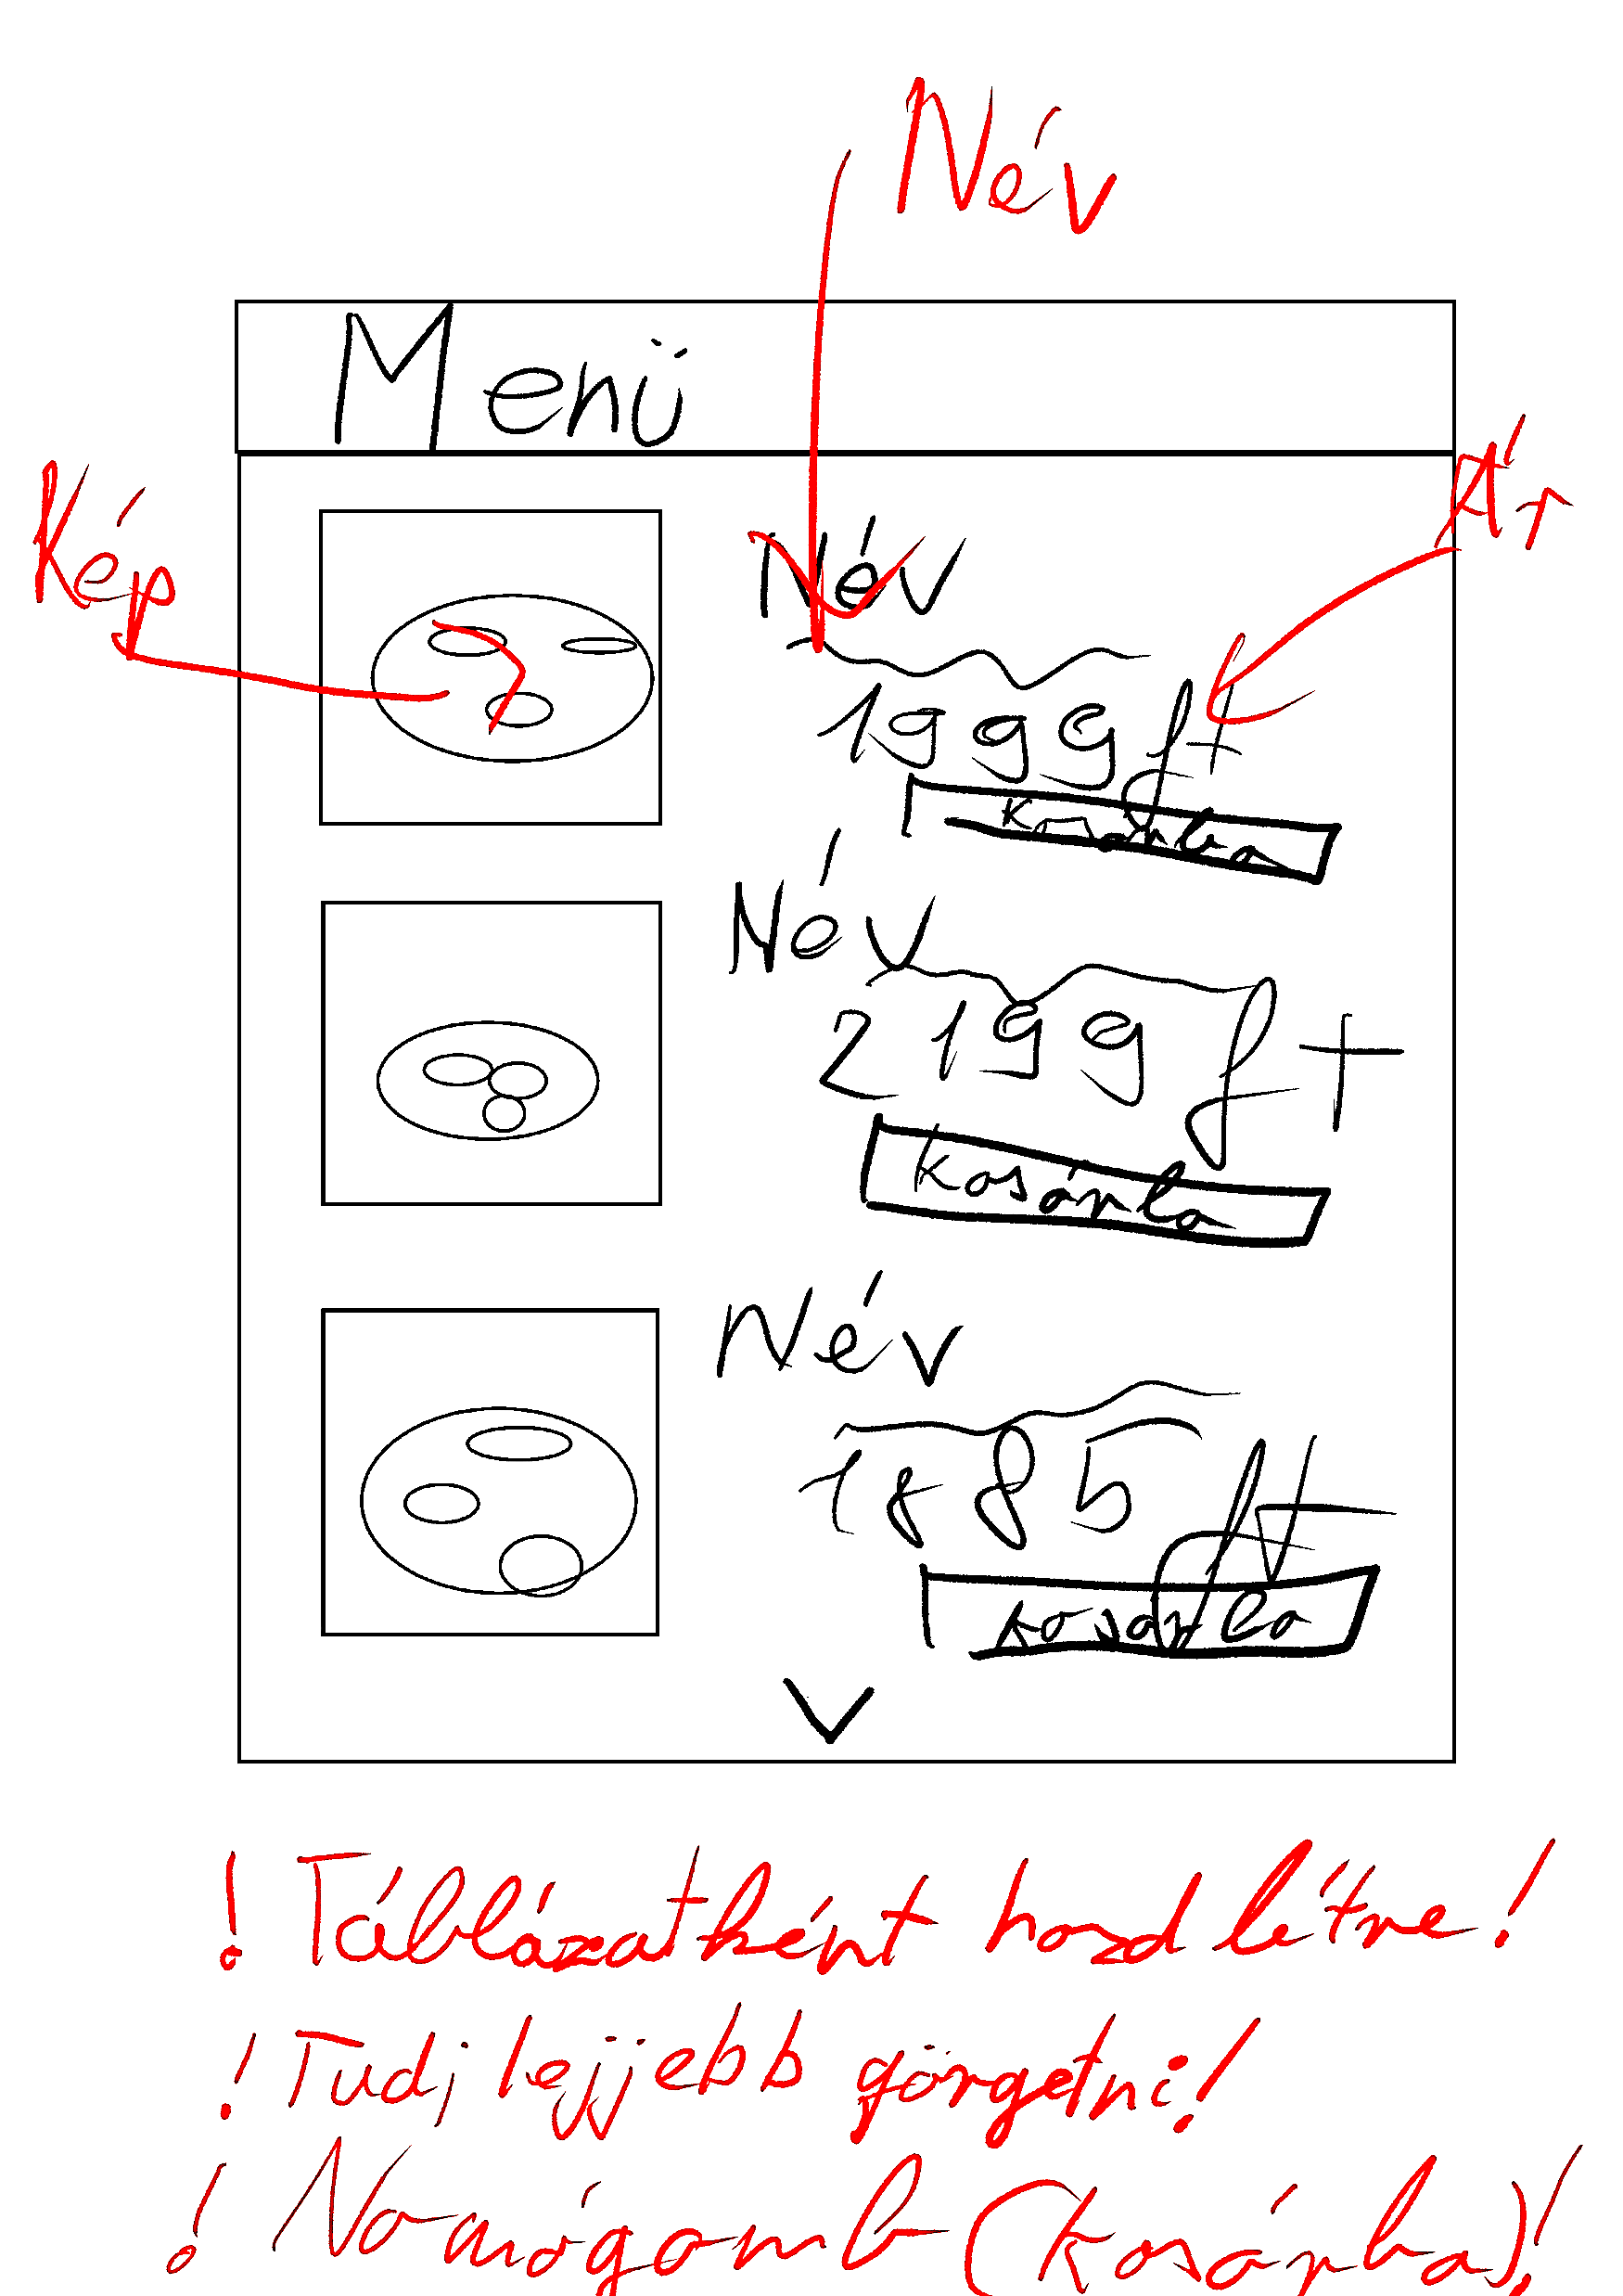 Név
Menü
Ár
Kép
Név
1999 ft
kosárba
Név
2199 ft
kosárba
Név
1885 ft
kosárba
! Táblázatként hozd létre!
! Tudj lejjebb görgetni!
! Nyomógomb (kosárba)!